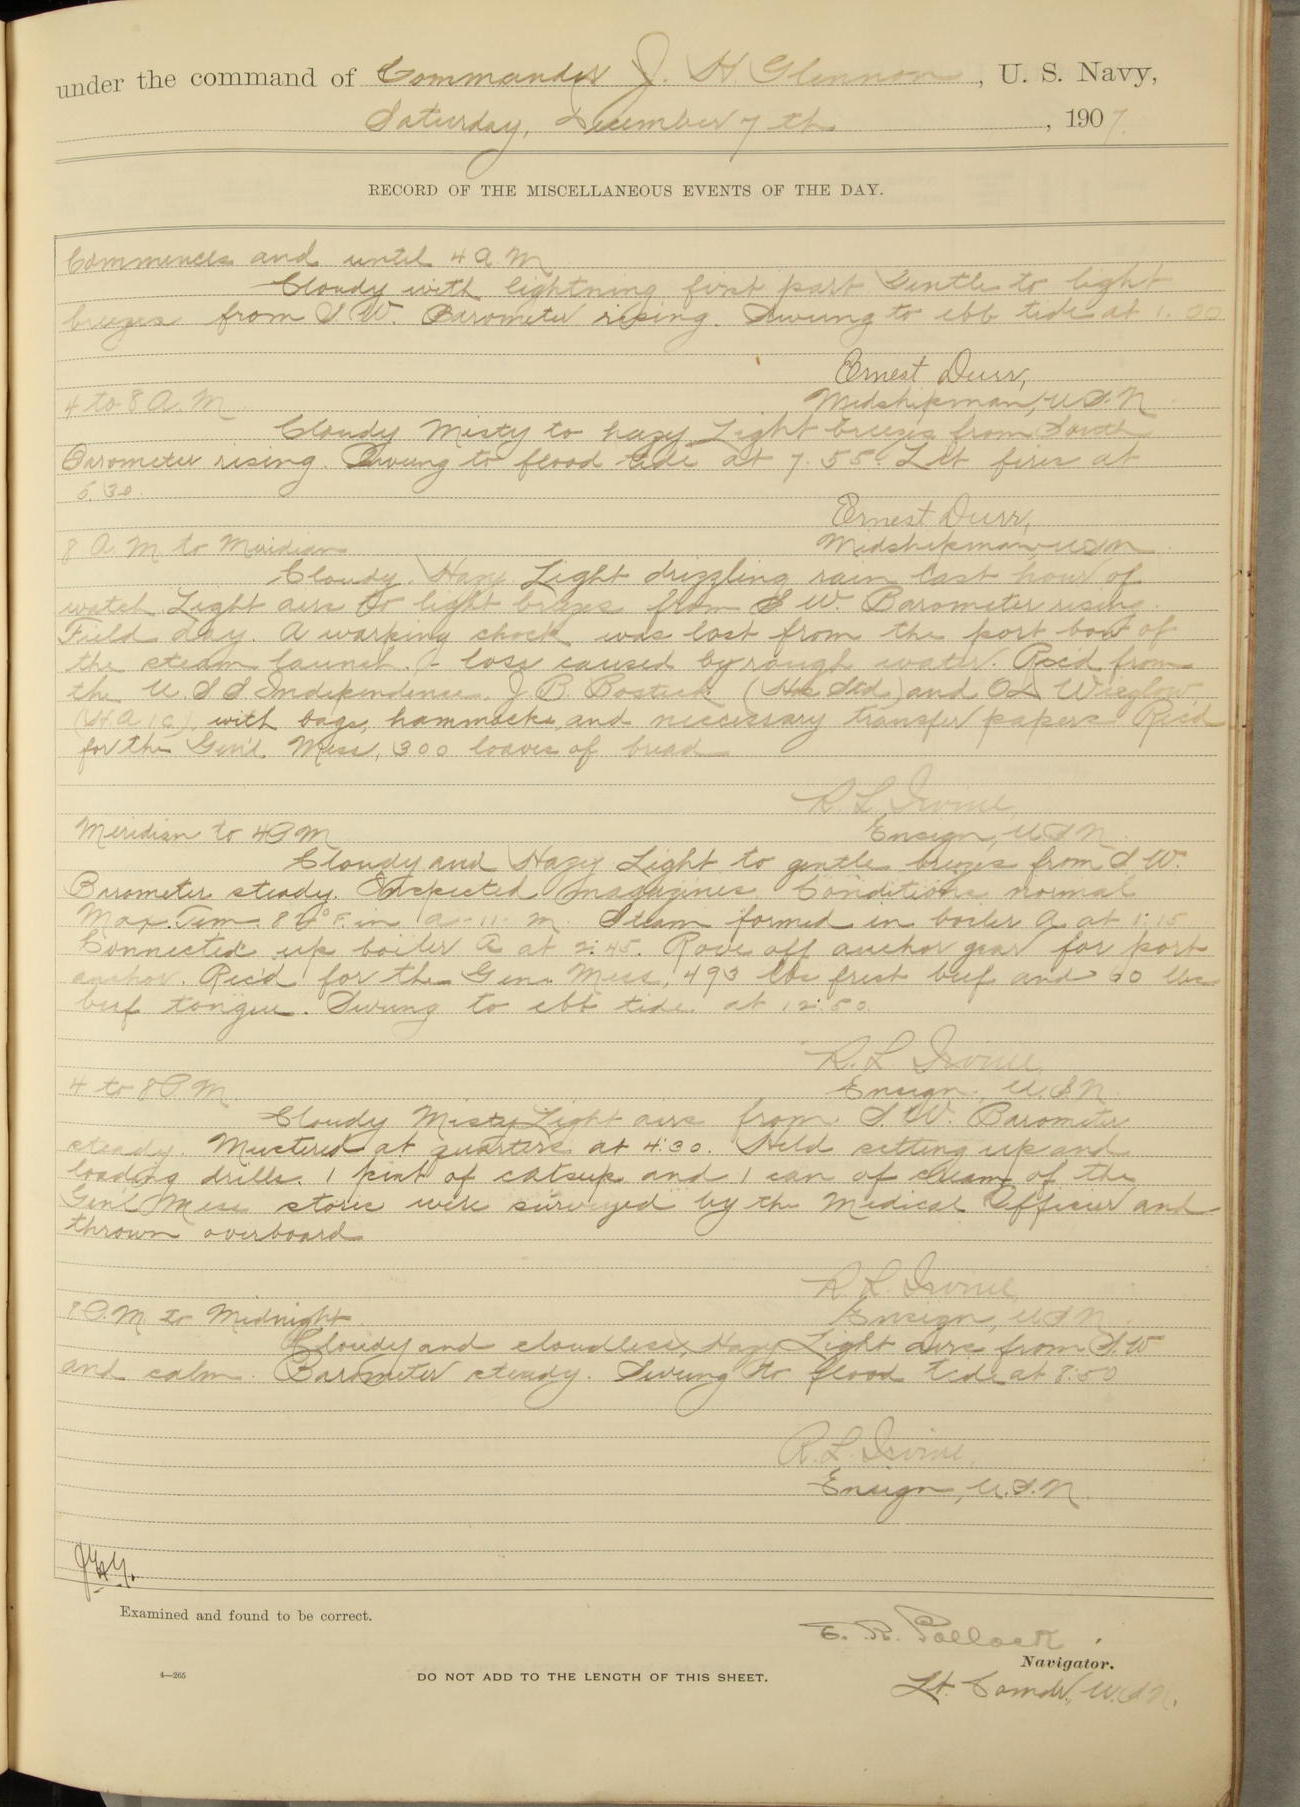 under the command of Commander J. H. Glennon, U. S. Navy,
Saturday, December 7th, 1907.
RECORD OF THE MISCELLANEOUS EVENTS OF THE DAY.
Commences and until 4 A M
Cloudy with lightning first part Gentle to light
breezes from S. W. Barometer rising. Swung to ebb tide at 1.00
Ernest Durr,
Midshipman, U.S.N
4 to 8 A. M
Cloudy Misty to hazy Light breezes from South
Barometer rising. Swung to flood tide at 7.55. Lit fires at
5.30.
Ernest Durr,
Midshipman U S N
8 A. M to Meridian
Cloudy. Hazy. Light drizzling rain last hour of
watch Light airs to light breezes from S W. Barometer rising.
Field day. A warping chock was lost from the port bow of
the steam launch, - loss caused by rough water. Rec'd from
the U. S S Independence. J. B. Bostick (Hos Std) and
(H A 1c), with bags, hammocks, and neccessary transfer papers. Rec'd
for the Gen'l Mess, 300 loaves of bread
R. L. Irvine,
Ensign, U.S.N.
Meridian to 4 P M
Cloudy and Hazy Light to gentle breezes from S. W.
Barometer steady. Inspected magazines. Conditions normal
Max. Tem. 84° F. in a-11-m. Steam formed in boiler A at 1:15
Connected up boiler A at 2:45. Rove off anchor gear for port
anchor. Rec'd for the Gen. Mess, 493 lbs fresh beef and lbs
beef tongue. Swung to ebb tide at 12:50.
R. L. Irvine,
Ensign, U.S.N.
4 to 8 P. M.
Cloudy Misty Light airs from S. W. Barometer
steady. Mustered at quarters at 4:30. Held setting up and
loading drills. 1 pint of catsup and 1 can of cream of the
Gen'l Mess stores were surveyed by the Medical Officer and
thrown overboard
R. L. Irvine,
Ensign, U.S.N.
8 P. M to Midnight
Cloudy and cloudless, Hazy Light airs from S. W
and calm. Barometer steady. Swung to flood tide at 8:50
R. L. Irvine,
Ensign, U.S.N.
J.H.G.
Examined and found to be correct.
E. R. Pollock
Navigator.
Lt. Comdr, U.S.N.
4—265
DO NOT ADD TO THE LENGTH OF THIS SHEET.